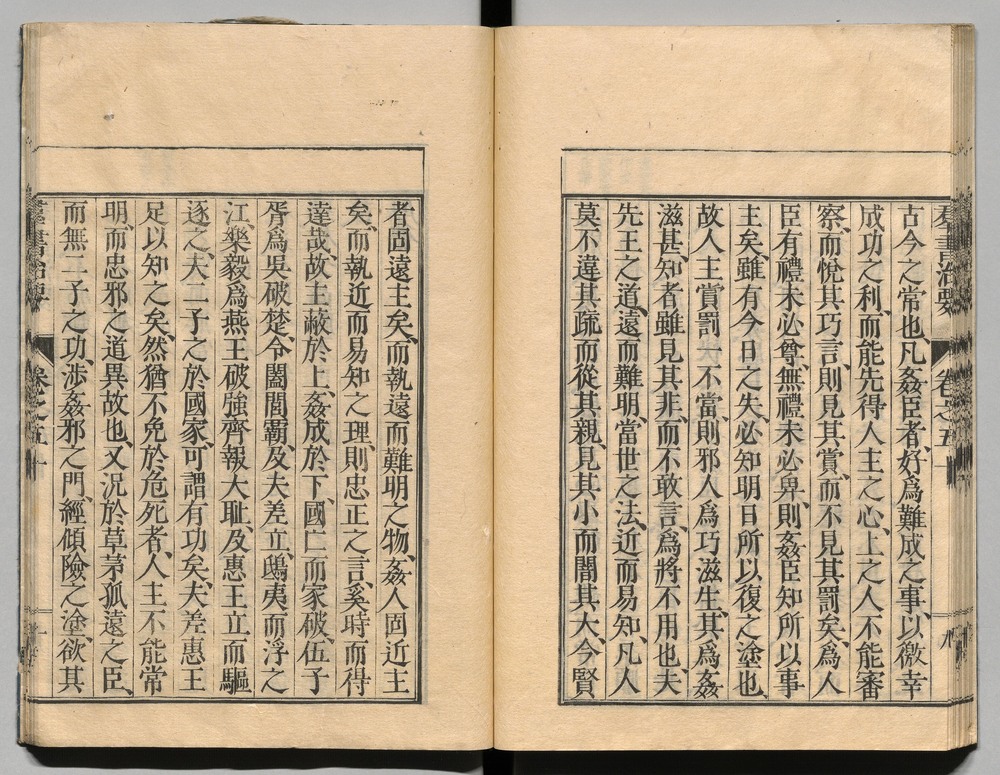 羣書治要 卷之五十
古今之常也、凡姦臣者、好爲難成之事、以徼幸
成功之利、而能先得人主之心、上之人不能審
察、而悅其巧言、則見其賞、而不見其罰矣、爲人
臣有禮未必尊、無禮未必卑、則姦臣知所以事
主矣、雖有今日之失、必知明日所以復之塗也、
故人主賞罰一不當、則邪人爲巧滋生、其爲姦
滋甚、知者雖見其非、而不敢言、爲將不用也、夫
先王之道、遠而難明、當世之法、近而易知、凡人
莫不違其疏、而從其親、見其小、而闇其大、今賢
者固遠主矣、而執遠而難明之物、姦人固近主
矣、而執近而易知之理、則忠正之言、奚時而得
達哉、故主蔽於上、姦成於下、國亡而家破、伍子
胥爲吳破楚、令闔閭霸、及夫差立、鴟夷而浮之
江、樂毅爲燕王破強齊、報大恥、及惠王立、而驅
逐之、夫二子之於國家、可謂有功矣、夫差惠王
足以知之矣、然猶不免於危死者、人主不能常
明、而忠邪之道異故也、又況於草茅孤遠之臣、
而無二子之功、涉姦邪之門、經傾險之塗、欲其
羣書治要 卷之五十